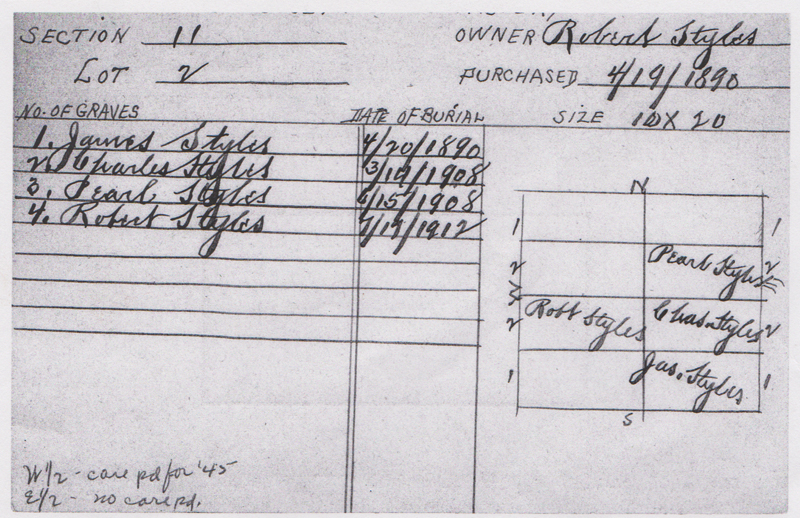 SECTION 11
OWNER Robert Styles
LOT 2
PURCHASED 4/19/1890
NO. OF GRAVES DATE OF BURIAL SIZE 10 X 20
1. James Styles 4/20/1890
2. Charles Styles 3/19/1908
3. Pearl Styles 6/15/1908
4. Robert Styles 7/19/1912
N
1 1
2 Pearl Styles 2
2 Robt Styles Chas. Styles 2
1 Jas. Styles 1
S
W 1/2 - care pd for '45
E 1/2 - no care pd.